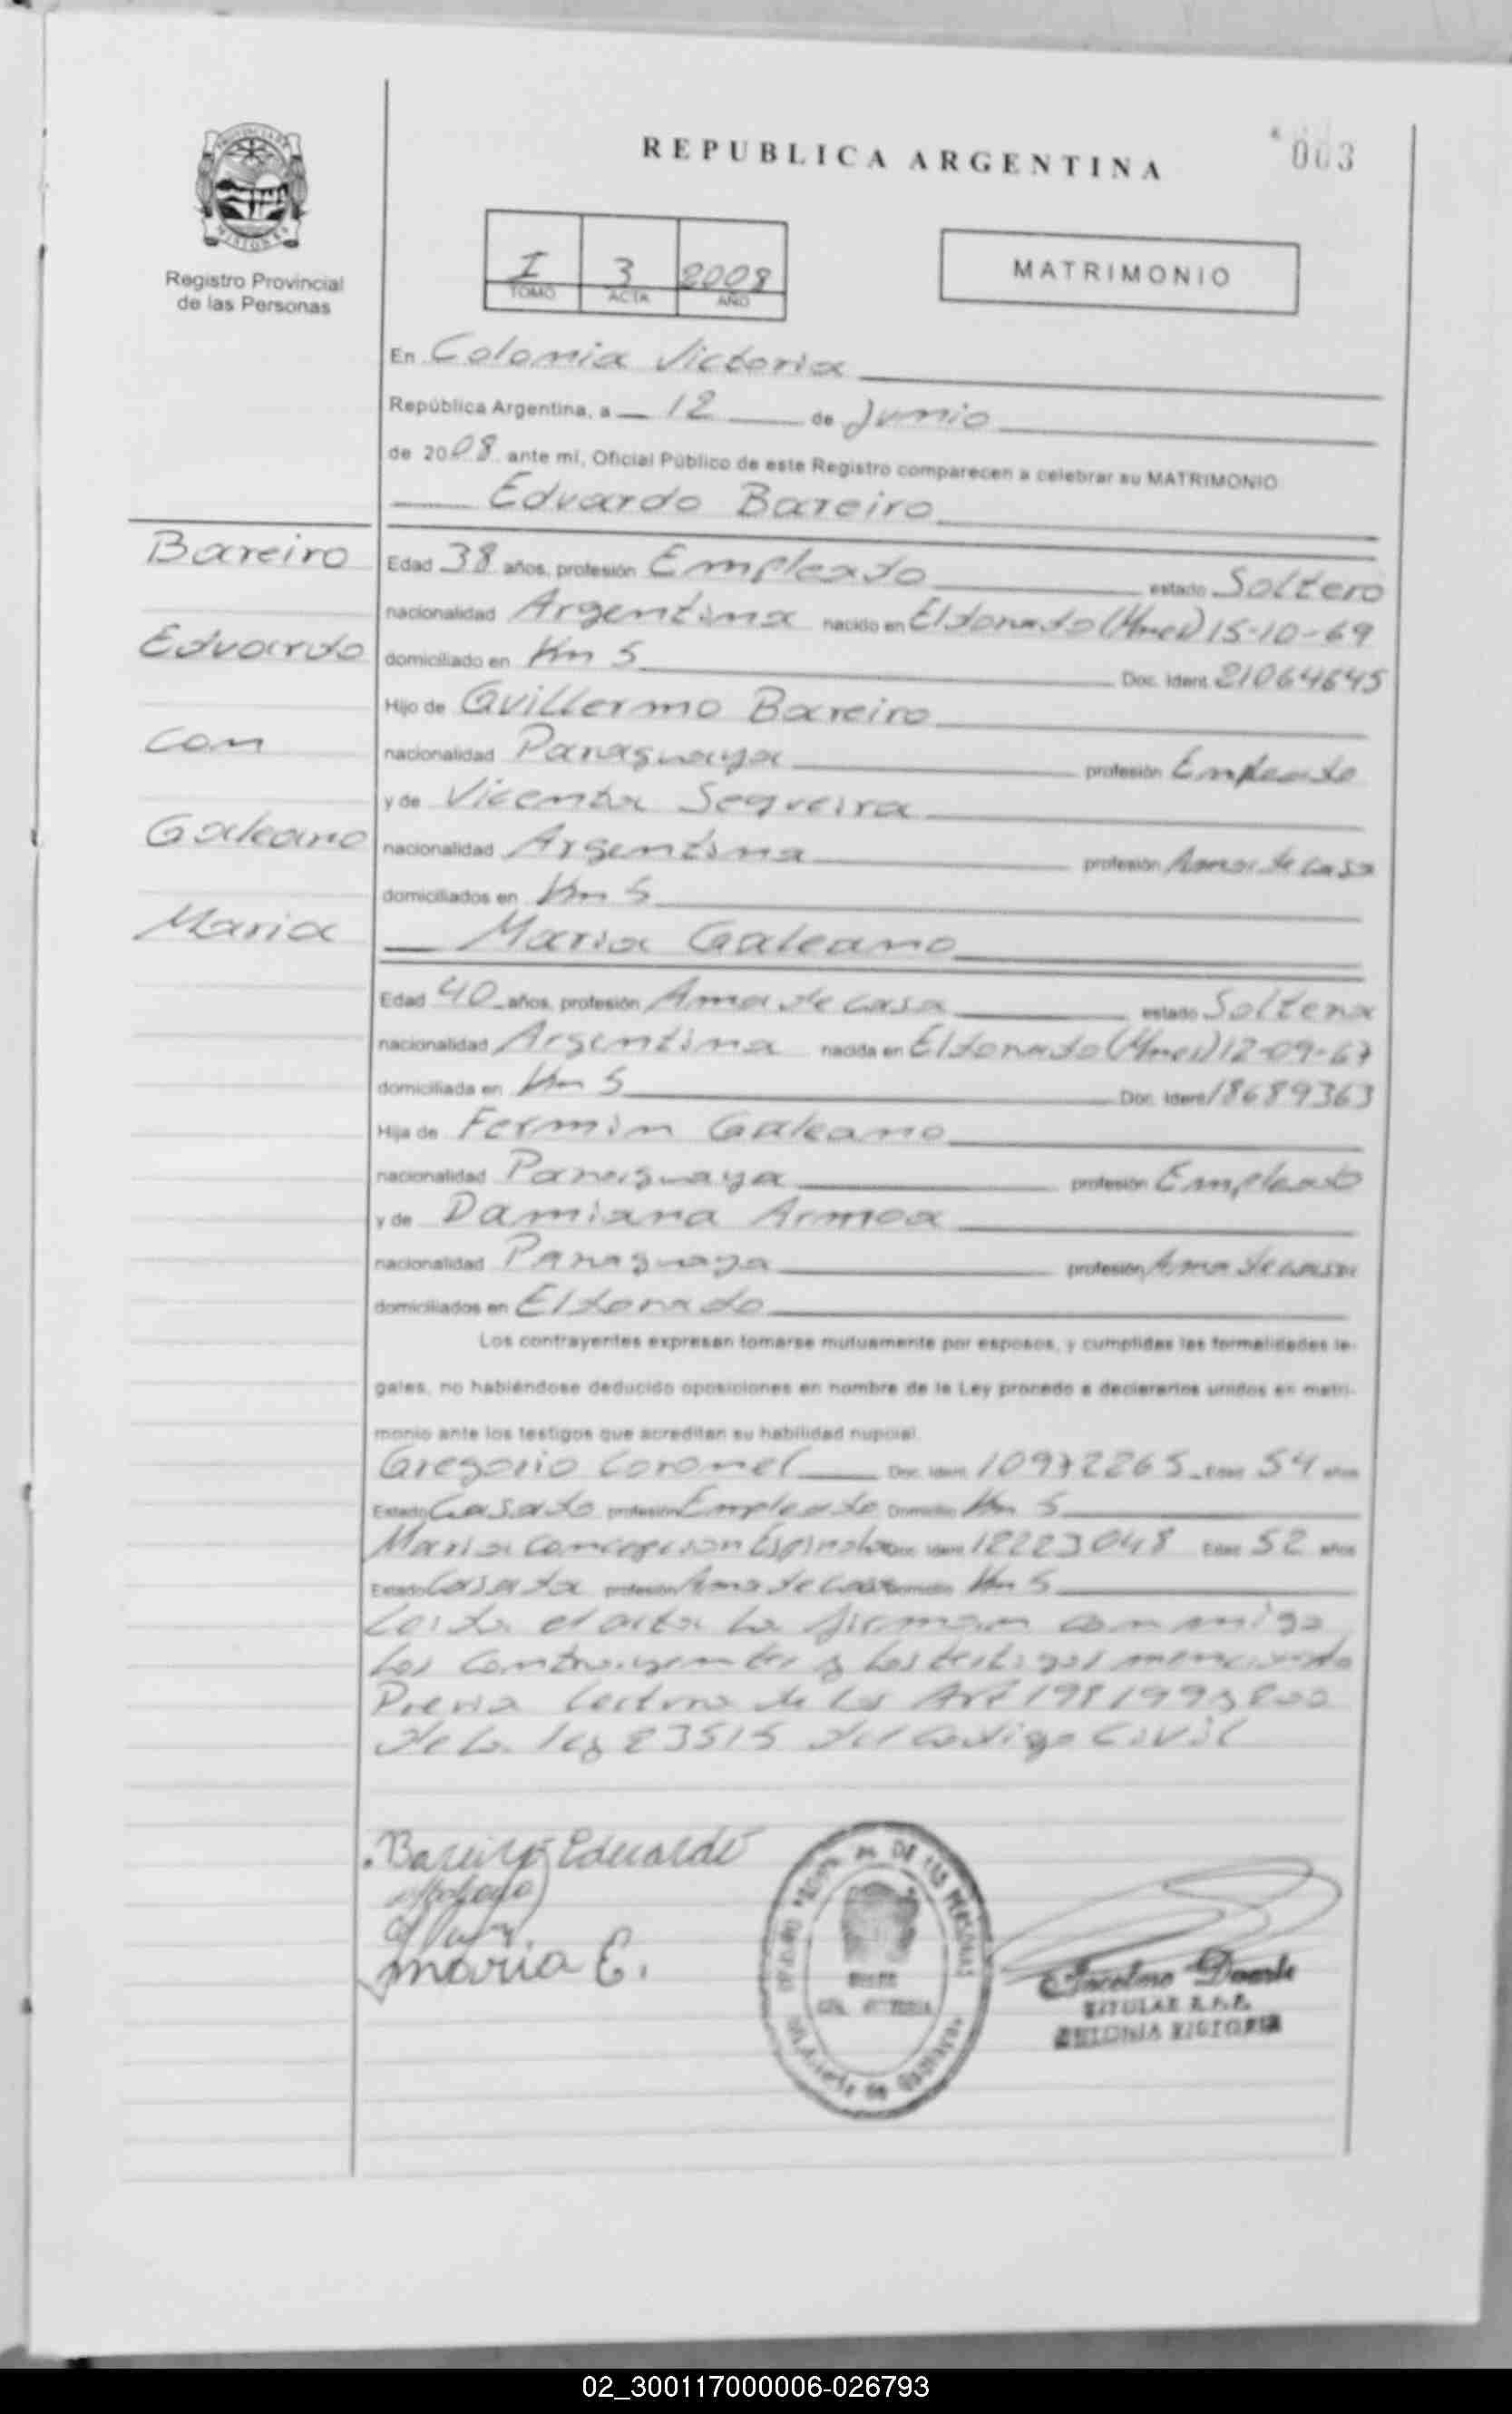 REPUBLICA ARGENTINA
003
PROVINCIA DE
MISIONES
Registro Provincial
de las Personas
I 3 2008
TOMO ACTA AÑO
MATRIMONIO
En Colonia Victoria
República Argentina, a 12 de Junio
de 2008 ante mí, Oficial Público de este Registro comparecen a celebrar su MATRIMONIO
Eduardo Bareiro
Bareiro
Eduardo
con
Galeano
Maria
Edad 38 años, profesión Empleado estado Soltero
nacionalidad Argentina nacido en Eldorado (Mnes) 15-10-69
domiciliado en Km 5 Doc. Ident. 21064645
Hijo de Guillermo Bareiro
nacionalidad Paraguaya profesión Empleado
y de Vicenta Sequeira
nacionalidad Argentina profesión Ama de casa
domiciliados en Km 5
Maria Galeano
Edad 40 años, profesión Ama de casa estado Soltera
nacionalidad Argentina nacida en Eldorado (Mnes) 12-09-67
domiciliada en Km 5 Doc. Ident. 18689363
Hija de Fermin Galeano
nacionalidad Paraguaya profesión Empleado
y de Damiana Armoa
nacionalidad Paraguaya profesión Ama de casa
domiciliados en Eldorado
Los contrayentes expresan tomarse mutuamente por esposos, y cumplidas las formalidades le-
gales, no habiéndose deducido oposiciones en nombre de la Ley procedo a declararlos unidos en matri-
monio ante los testigos que acreditan su habilidad nupcial.
Gregorio Coronel Doc. Ident. 10972265 Edad 54 años
Estado Casado profesión Empleado Domicilio Km 5
Maria Concepcion Espinola Doc. Ident. 12223048 Edad 52 años
Estado Casada profesión Ama de casa Domicilio Km 5
Leida el acta la firman conmigo
los contrayentes y los testigos mencionado
Previa lectura de los Art 198 199 y 200
de la ley 23515 del Codigo Civil
Bareiro Eduardo
maria E.
DE LAS PERSONAS
COL. VICTORIA
Duarte
TITULAR R.P.P.
COLONIA VICTORIA
02_300117000006-026793